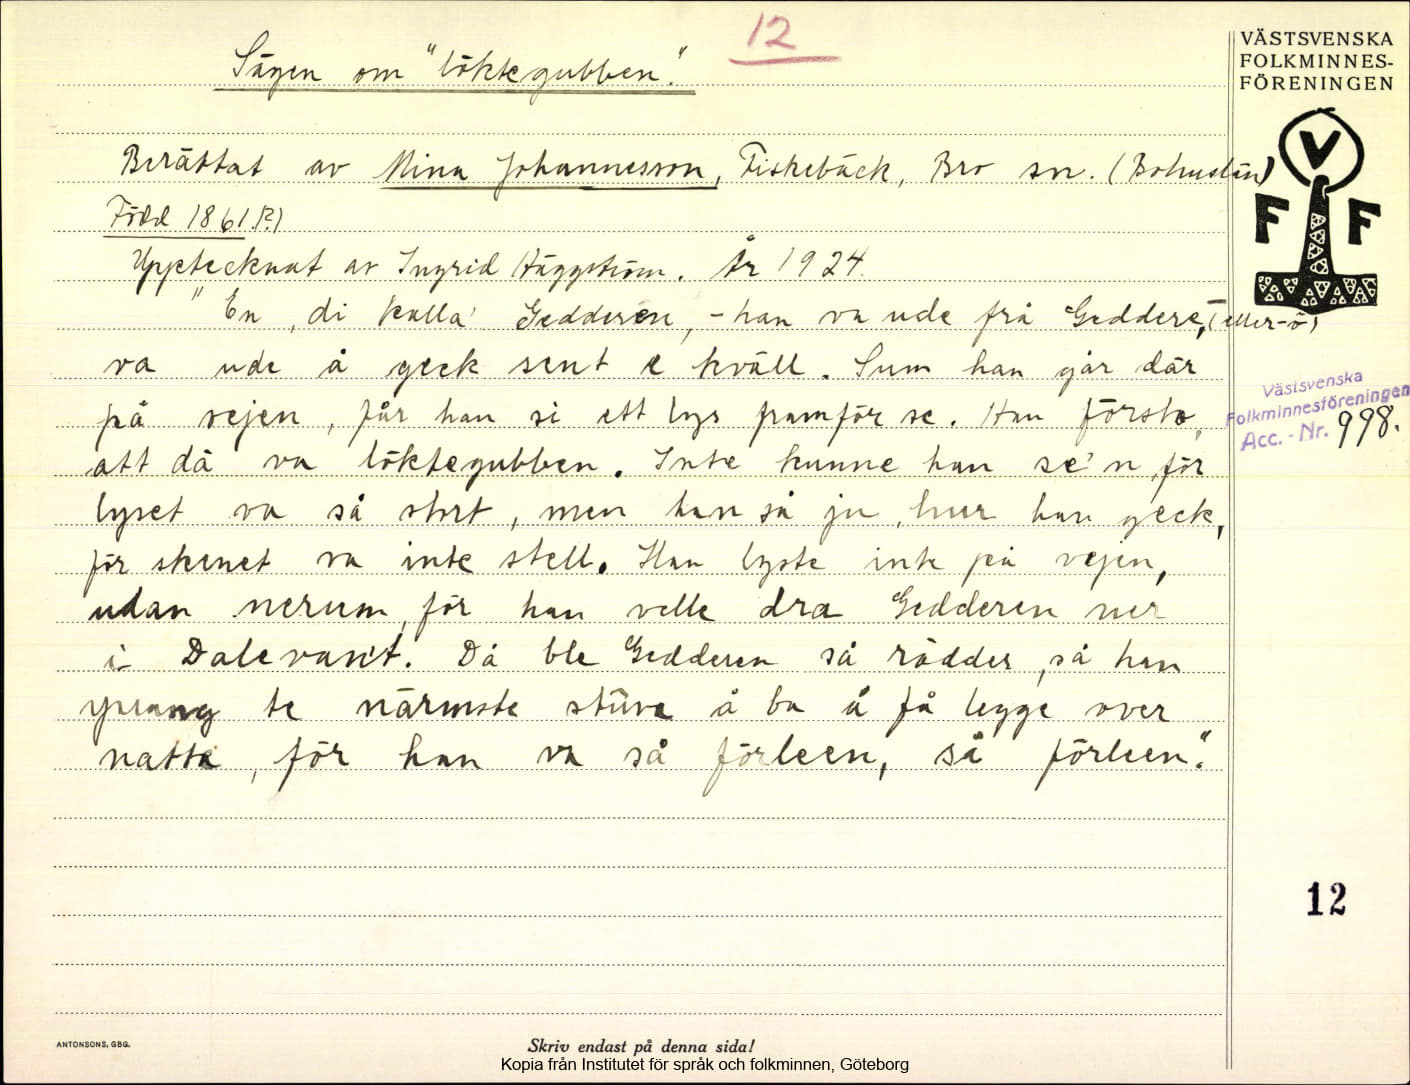 12
Sägen om "löktegubben".
Berättat av Mina Johannesson, Fiskebäck, Bro sn. (Bohuslän)
Född 1861.(?)
Upptecknat av Ingrid Häggström. År 1924.
"En, di kalla' Gedderen, - han va ude frå Geddere, (eller -ö)
va ude å geck sent e kväll. Sum han går där
på vejen, får han si ett lys framför se. Han första,
att då va löktegubben. Inte kunne han se'n, för
lyset va så stort, men han så ju, hur han geck,
för skenet va inte stell. Han lyste inte på vejen,
udan nerum, för han velle dra Gedderen ner
i Dalevan't. Då ble Gedderen så rädder, så han
sprang te närmste stûva å ba å få legge over
natta, för han va så förleen, så förleen."
VÄSTSVENSKA
FOLKMINNES-
FÖRENINGEN
V
F F
Västsvenska
Folkminnesföreningen
Acc. - Nr. 998.
12
ANTONSONS, GBG.
Skriv endast på denna sida!
Kopia från Institutet för språk och folkminnen, Göteborg